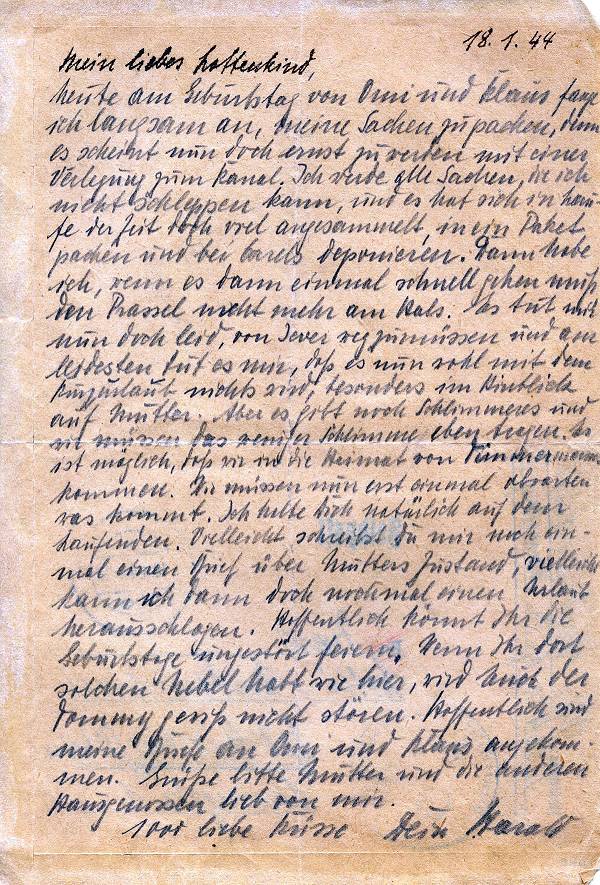 18.1.44
Mein liebes Lottenkind,
heute am Geburtstag von Omi und Klaus fange
ich langsam an, meine Sachen zu packen, denn
es scheint nun doch ernst zu werden mit einer
Verlegung zum Kanal. Ich werde alle Sachen, die ich
nicht schleppen kann, und es hat sich in hau-
fe der Zeit doch viel angesammelt, in ein Paket
packen und bei deponieren. Dann habe
ich, wenn es dann einmal schnell gehen muß
den Prassel nicht mehr am Hals. Es tut mir
nun doch leid, von Jever weg zu müssen und am
leidesten tut es mir, daß es nun wohl mit dem
nichts wird, besonders im Hinblick
auf Mutter. Aber es gibt noch Schlimmeres und
wir müssen das weniger Schlimme eben tragen. Es
ist möglich, daß wir in die Heimat von Timmermanns
kommen. Wir müssen nun erst einmal abwarten
was kommt. Ich halte Dich natürlich auf dem
Laufenden. Vielleicht schreibst Du mir noch ein-
mal einen Brief über Mutters Zustand, vielleicht
kann ich dann doch nochmal einen Urlaub
herausschlagen. Hoffentlich könnt Ihr die
Geburtstage ungestört feiern. Wenn Ihr dort
solchen Nebel habt wie hier, wird Euch der
Tommy gewiß nicht stören. Hoffentlich sind
meine Briefe an Omi und Klaus angekom-
men. Grüße bitte Mutter und die anderen
Hausgenossen lieb von mir.
1000 liebe Küsse Dein Harald